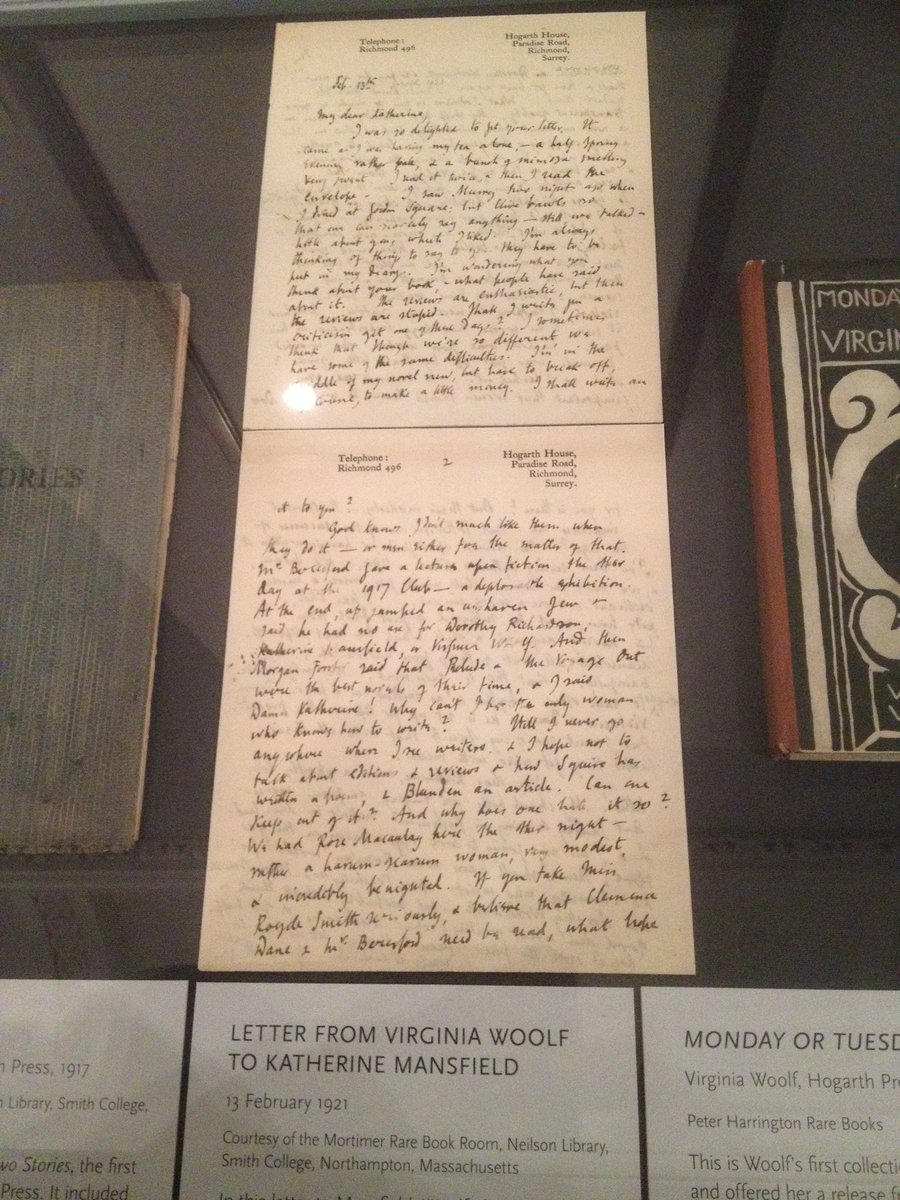 Telephone:
Richmond 496
Hogarth House,
Paradise Road,
Richmond,
Surrey.
Feb. 13th
My dear Katherine,
I was so delighted to get your letter. It
came as I was having my tea alone, – a half spring
evening rather pale, & a bunch of mimosa smelling
very sweet. I read it twice, & then I read the
envelope. I saw Murry two nights ago when
I dined at Gordon Square; but Clive bawls so
that one can scarcely say anything – still we talked a
little about you, which I liked. I'm always
thinking of things to say to you. They have to be
put in my diary. I'm wondering what you
think about your book, & what people have said
about it. The reviews are enthusiastic, but then
the reviews are stupid. Shall I write you a
criticism one of these days? I sometimes
think that though we're so different we
have some of the same difficulties. I'm in the
middle of my novel now, but have to break off,
of course, to make a little money. I shall write an
Telephone:
Richmond 496
2
Hogarth House,
Paradise Road,
Richmond,
Surrey.
it to you?
God knows I don't much like them when
they do it – or men either for the matter of that.
Mr Beresford gave a lecture upon fiction the other
day at the 1917 Club – a deplorable exhibition.
At the end, up jumped an unshaven Jew &
said he had no use for Dorothy Richardson,
Katherine Mansfield, or Virginia Woolf. And then
Morgan Forster said that Prelude & The Voyage Out
were the best novels of their time, & I said
Damn Katherine! Why can't I be the only woman
who knows how to write? Still I never go
anywhere where I see writers. & I hope not to
talk about editions & reviews & how Squire has
written a poem, & Blunden an article. Can one
keep out of it? And why does one hate it so?
We had Rose Macaulay here the other night –
rather a harum-scarum woman, very modest,
& incredibly benighted. If you take Miss
Royde Smith seriously, & believe that Clemence
Dane & Mr. Beresford need be read, what hope
ORIES
MONDAY
VIRGIN
n Press, 1917
n Library, Smith College,
wo Stories, the first
Press. It included
LETTER FROM VIRGINIA WOOLF
TO KATHERINE MANSFIELD
13 February 1921
Courtesy of the Mortimer Rare Book Room, Neilson Library,
Smith College, Northampton, Massachusetts
In this letter to Mansfield
MONDAY OR TUESD
Virginia Woolf, Hogarth Pre
Peter Harrington Rare Books
This is Woolf's first collecti
and offered her a release f